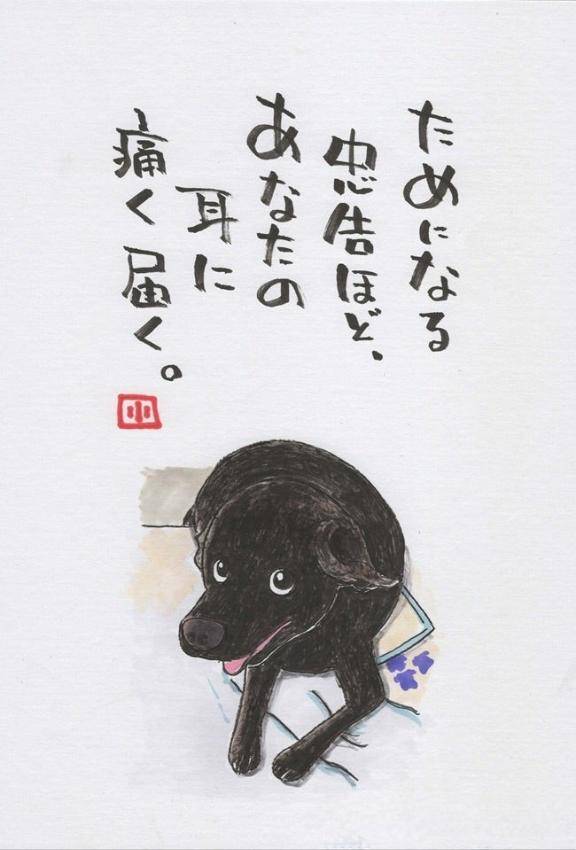 ためになる
忠告ほど、
あなたの
耳に
痛く届く。
小